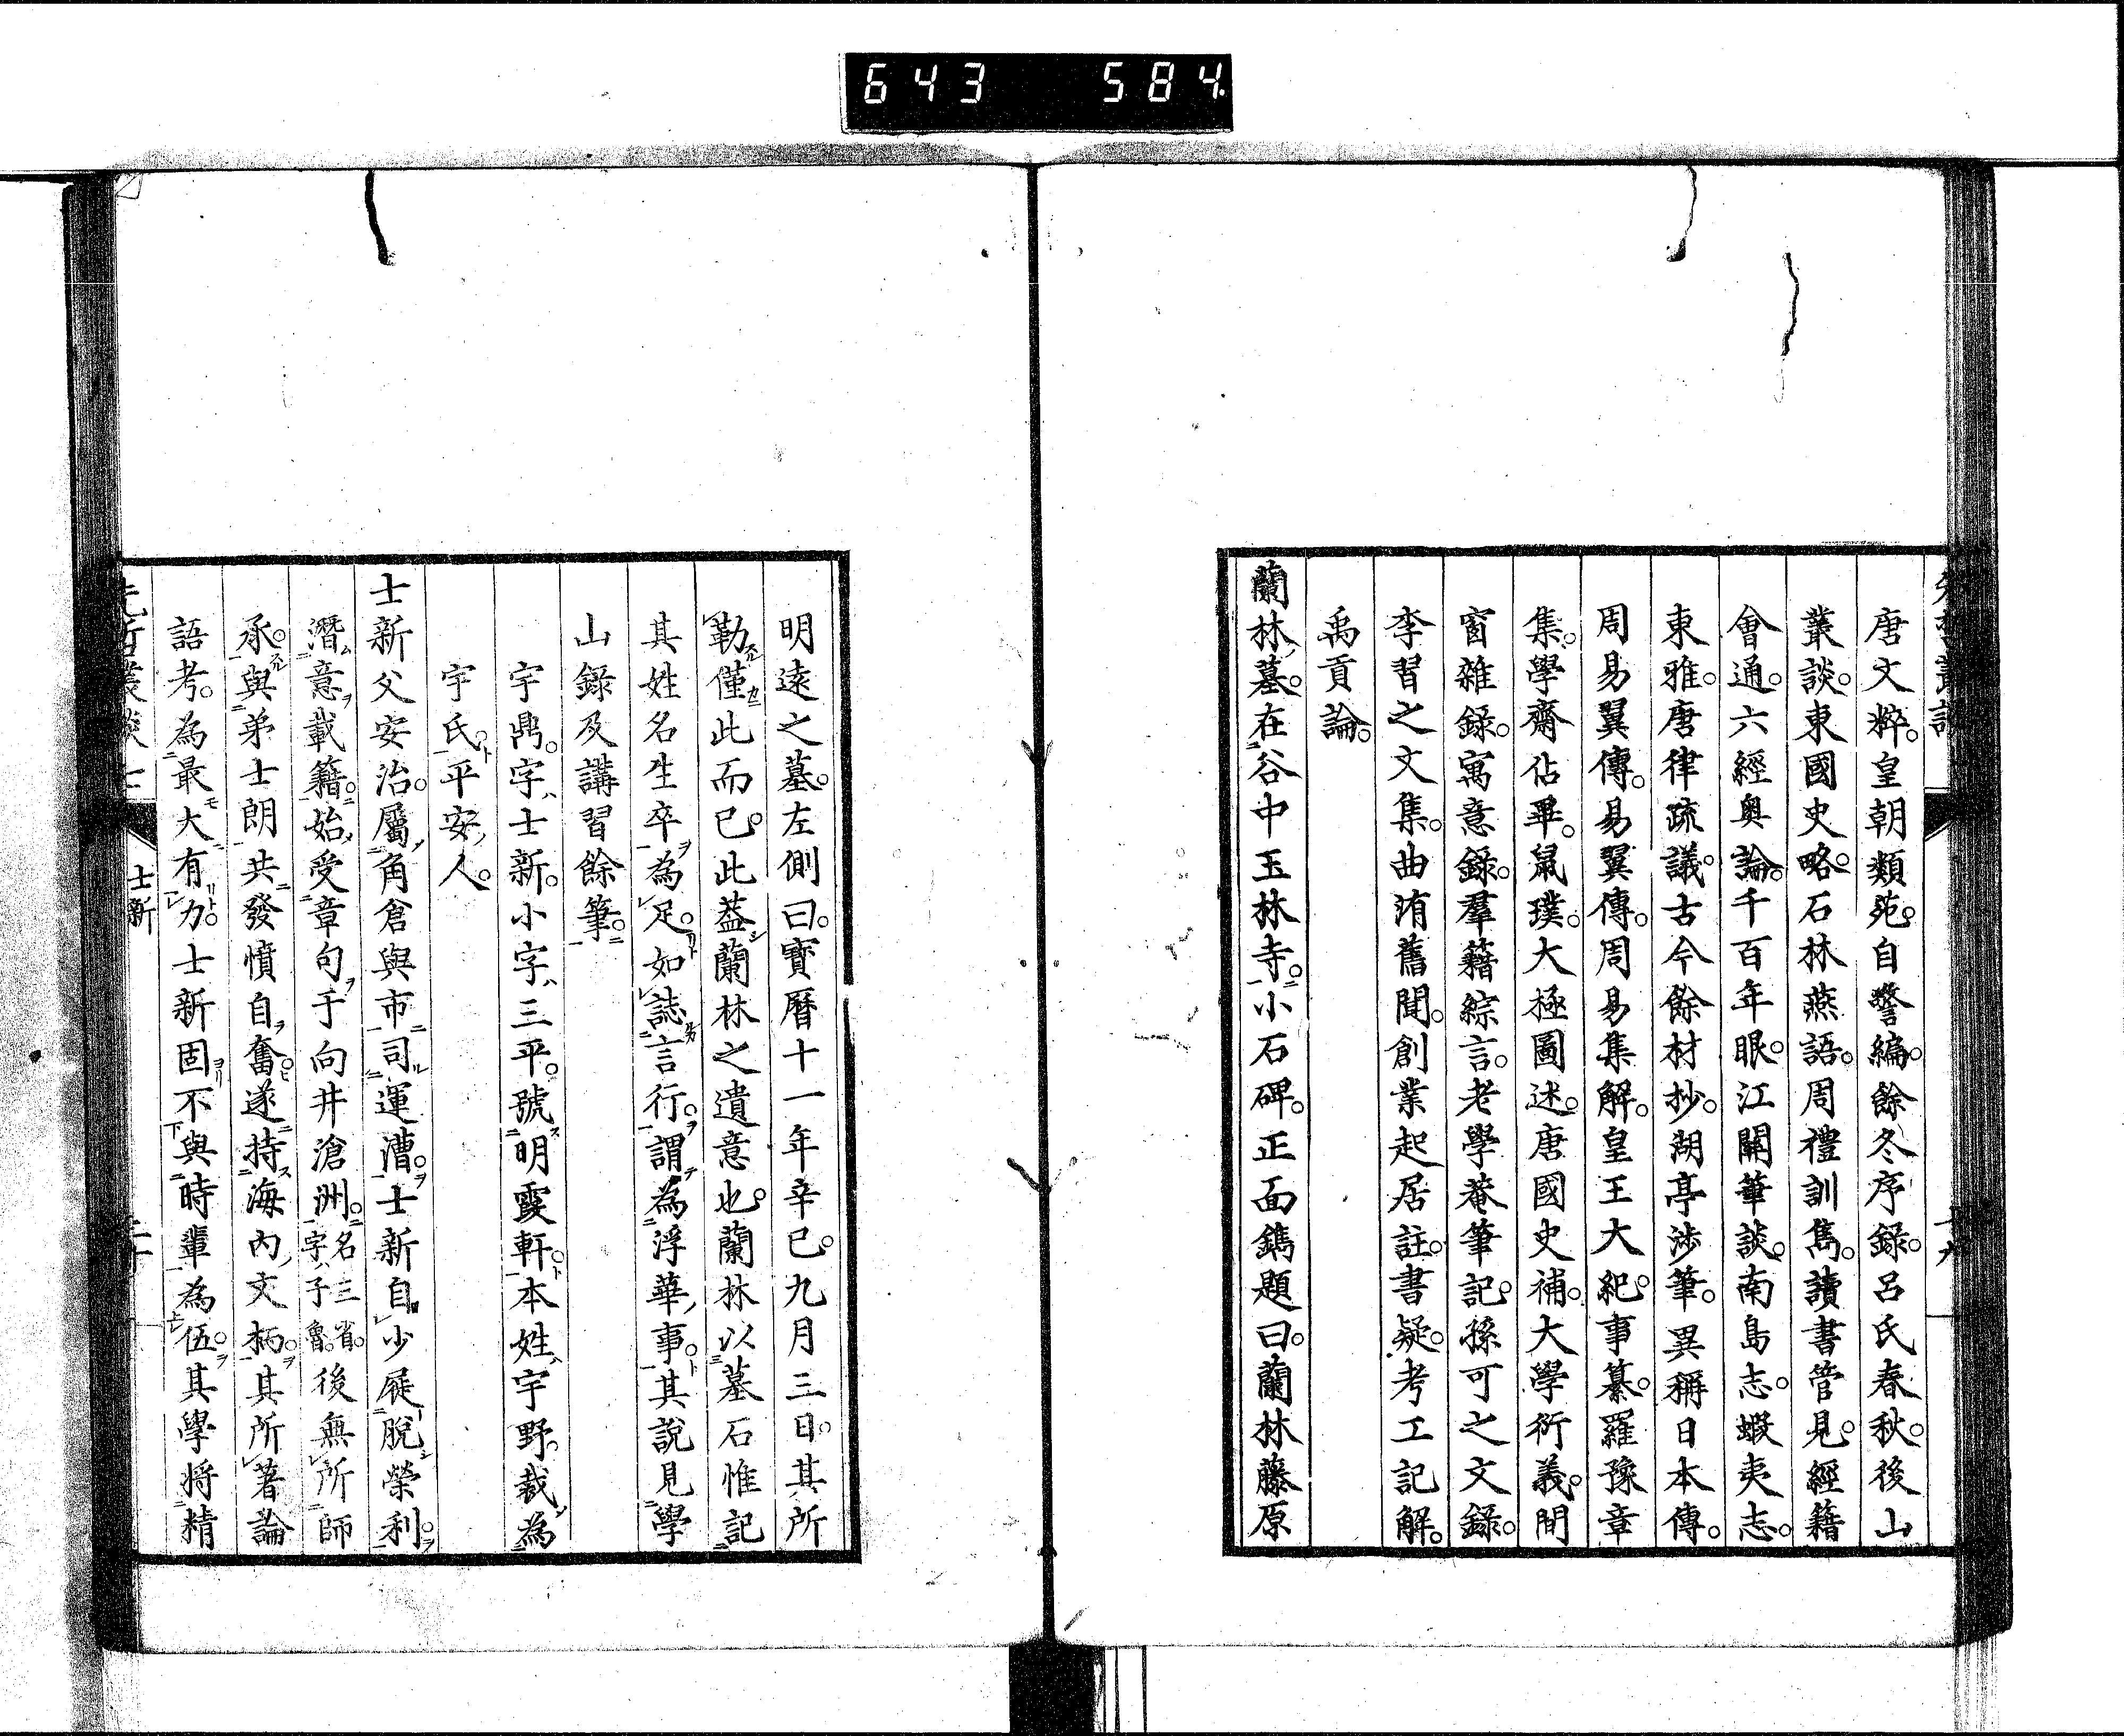 643 584.
先哲叢談
十九
唐文粹。皇朝類苑。自警編。餘冬序録。呂氏春秋。後山
叢談。東國史略。石林燕語。周禮訓雋。讀書管見。經籍
會通。六經奥論。千百年眼。江關筆談。南島志。蝦夷志。
東雅。唐律疏議。古今餘材抄。湖亭渉筆。異稱日本傳。
周易翼傳。易翼傳。周易集解。皇王大紀。事纂。羅豫章
集。學齋佔畢。鼠璞。大極圖述。唐國史補。大學衍義。間
窗雜録。寓意録。羣籍綜言。老學菴筆記。孫可之文録。
李習之文集。曲洧舊聞。創業起居註。書疑。考工記解。
禹貢論。
蘭林ノ墓。在谷中玉林寺。小石碑。正面鐫題曰。蘭林藤原
明遠之墓。左側曰。寶暦十一年辛已。九月三日。其所
勒僅此而已。此蓋蘭林之遺意也。蘭林以墓石惟記
其姓名生卒爲足。如誌言行。謂爲浮華ノ事。其說見學
山録及講習餘筆。
宇鼎。字ハ士新。小字ハ三平。號明霞軒。本姓ハ宇野。裁爲
宇氏。平安ノ人。
士新父安治。屬角倉與市司運漕。士新自少屣脫榮利。
潛意載籍。始受章句于向井滄洲。名三省。字ハ子魯。後無所師
承。與弟士朗共發憤自奮。遂持海內ノ文柄。其所著論
語考。爲最大有力。士新固不與時輩爲伍。其學将精
先哲叢談
士新
二十